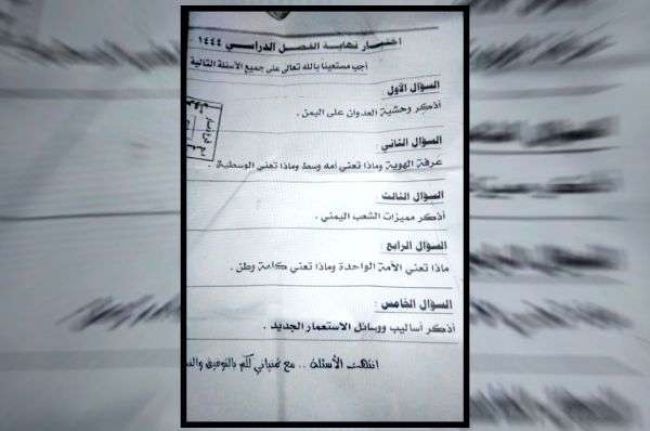 اختبار نهاية الفصل الدراسي ١٤٤٤
أجب مستعينا بالله تعالى على جميع الأسئلة التالية
السؤال الأول
أذكر وحشية العدوان على اليمن .
السؤال الثاني :
عرفة الهوية وماذا تعني امه وسط وماذا تعني الوسطية .
السؤال الثالث
أذكر مميزات الشعب اليمني .
السؤال الرابع :
ماذا تعني الأمة الواحدة وماذا تعني كلمة وطن .
السؤال الخامس :
أذكر أساليب ووسائل الاستعمار الجديد .
انتهت الأسئلة .. مع تمنياتي لكم بالتوفيق